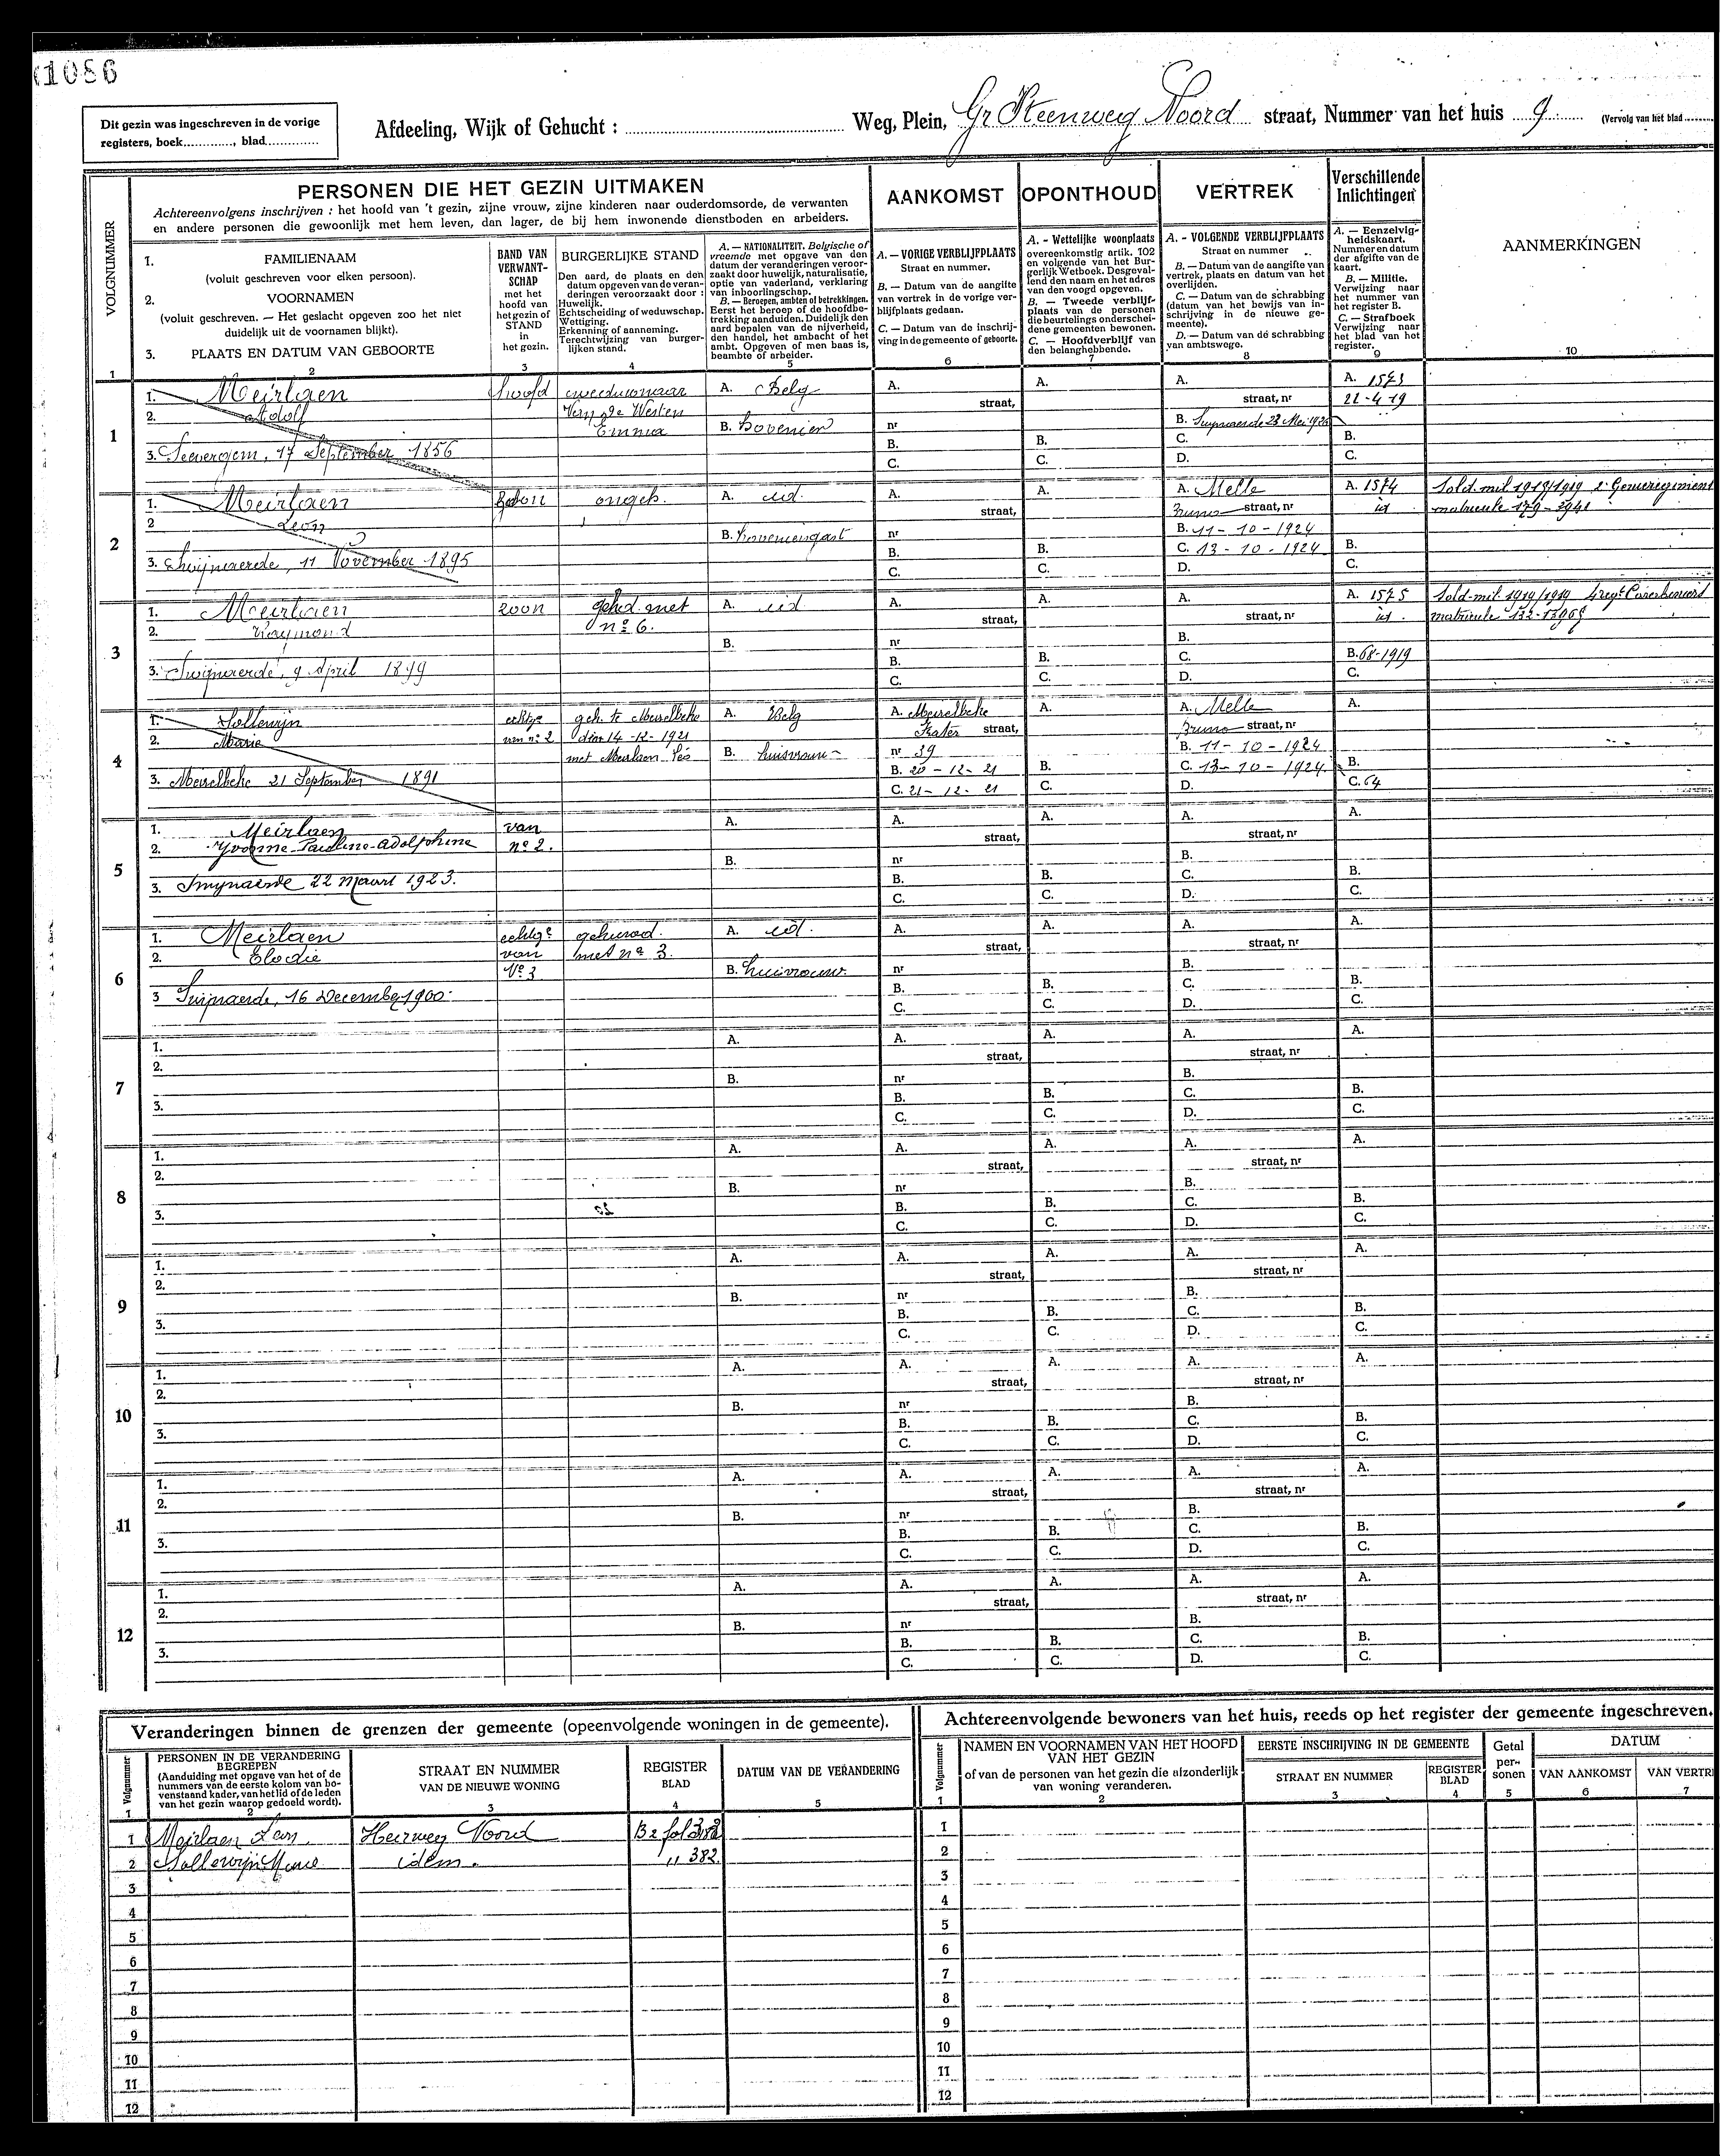 1086
Dit gezin was ingeschreven in de vorige
registers, boek............., blad..............
Afdeeling, Wijk of Gehucht : ........ Weg, Plein, Gr Steenweg Noord straat, Nummer van het huis 9 (Vervolg van het blad
PERSONEN DIE HET GEZIN UITMAKEN
Achtereenvolgens inschrijven : het hoofd van 't gezin, zijne vrouw, zijne kinderen naar ouderdomsorde, de verwanten
en andere personen die gewoonlijk met hem leven, dan lager, de bij hem inwonende dienstboden en arbeiders.
AANKOMST
OPONTHOUD
VERTREK
Verschillende
Inlichtingen
AANMERKINGEN
VOLGNUMMER
1. FAMILIENAAM
(voluit geschreven voor elken persoon).
2. VOORNAMEN
(voluit geschreven. — Het geslacht opgeven zoo het niet
duidelijk uit de voornamen blijkt).
3. PLAATS EN DATUM VAN GEBOORTE
BAND VAN
VERWANT-
SCHAP
met het
hoofd van
het gezin of
STAND
in
het gezin.
BURGERLIJKE STAND
Den aard, de plaats en den
datum opgeven van de veran-
deringen veroorzaakt door :
Huwelijk.
Echtscheiding of weduwschap.
Wettiging.
Erkenning of aanneming.
Terechtwijzing van burger-
lijken stand.
A. — NATIONALITEIT. Belgische of
vreemde met opgave van den
datum der veranderingen veroor-
zaakt door huwelijk, naturalisatie,
optie van vaderland, verklaring
van inboorlingschap.
B. — Beroepen, ambten of betrekkingen.
Eerst het beroep of de hoofdbe-
trekking aanduiden. Duidelijk den
aard bepalen van de nijverheid,
den handel, het ambacht of het
ambt. Opgeven of men baas is,
beambte of arbeider.
A. — VORIGE VERBLIJFPLAATS
Straat en nummer.
B. — Datum van de aangifte
van vertrek in de vorige ver-
blijfplaats gedaan.
C. — Datum van de inschrij-
ving in de gemeente of geboorte.
A. - Wettelijke woonplaats
overeenkomstig artik. 102
en volgende van het Bur-
gerlijk Wetboek. Desgeval-
lend den naam en het adres
van den voogd opgeven.
B. — Tweede verblijf-
plaats van de personen
die beurtelings onderschei-
dene gemeenten bewonen.
C. — Hoofdverblijf van
den belanghebbende.
A. - VOLGENDE VERBLIJFPLAATS
Straat en nummer
B. — Datum van de aangifte van
vertrek, plaats en datum van het
overlijden.
C. — Datum van de schrabbing
(datum van het bewijs van in-
schrijving in de nieuwe ge-
meente).
D. — Datum van de schrabbing
van ambtswege.
A. — Eenzelvig-
heidskaart.
Nummer en datum
der afgifte van de
kaart.
B. — Militie.
Verwijzing naar
het nummer van
het register B.
C. — Strafboek
Verwijzing naar
het blad van het
register.
1 2 3 4 5 6 7 8 9 10
1 1. Meirlaen hoofd weduwnaar A. Belg A. straat, A. A. straat, nr A. 1573
2. Adolf Van de Westen 22-4-19
Emma B. hovenier nr B. Swynaerde 23 Mei 1926
3. Seevergem, 17 September 1856 B. C. B. C. C. D. B. C.
2 1. Meirlaen zoon ongeh. A. id. A. straat, A. A. Melle straat, nr A. 1574 Sold. mil. 1918/1919 2e Genieregiment
2 Leon id matricule 179-2941
B. hoveniersgast nr B. 11-10-1924
3. Swijnaerde, 11 November 1895 B. C. B. C. C. 13-10-1924 D. B. C.
3 1. Meirlaen zoon gehd. met A. id A. straat, A. A. straat, nr A. 1575 Sold. mil. 1919/1919
2. Raymond no 6. id. matricule
B. nr B.
3. Swijnaerde, 9 April 1899 B. C. B. C. C. D. B. 68-1919 C.
4 1. Sollewijn echtge geh. te Meirelbeke A. Belg A. Meirelbeke straat, A. A. Melle straat, nr A.
2. Marie van no 2 den 14-12-1921
met Meirlaen Léo B. huisvrouw nr 39 B. 11-10-1924
3. Meirelbeke 21 September 1891 B. 20-12-21 B. C. 13-10-1924 B.
C. 21-12-21 C. D. C. 64
5 1. Meirlaen van A. A. straat, A. A. straat, nr A.
2. Yvonne-Pauline-Adolphine no 2.
B. nr B.
3. Swynaerde 22 Maart 1923. B. C. B. C. C. D. B. C.
6 1. Meirlaen echtge gehuwd. A. id. A. straat, A. A. straat, nr A.
2. Elodie van met no 3.
No 3 B. huisvrouw nr B.
3 Swijnaerde, 16 December 1900. B. C. B. C. C. D. B. C.
7 1. 2. 3. A. B. A. straat, nr B. C. A. B. C. A. straat, nr B. C. D. A. B. C.
8 1. 2. 3. A. B. A. straat, nr B. C. A. B. C. A. straat, nr B. C. D. A. B. C.
9 1. 2. 3. A. B. A. straat, nr B. C. A. B. C. A. straat, nr B. C. D. A. B. C.
10 1. 2. 3. A. B. A. straat, nr B. C. A. B. C. A. straat, nr B. C. D. A. B. C.
11 1. 2. 3. A. B. A. straat, nr B. C. A. B. C. A. straat, nr B. C. D. A. B. C.
12 1. 2. 3. A. B. A. straat, nr B. C. A. B. C. A. straat, nr B. C. D. A. B. C.
Veranderingen binnen de grenzen der gemeente (opeenvolgende woningen in de gemeente).
Volgnummer
PERSONEN IN DE VERANDERING
BEGREPEN
(Aanduiding met opgave van het of de
nummers van de eerste kolom van bo-
venstaand kader, van het lid of de leden
van het gezin waarop gedoeld wordt).
STRAAT EN NUMMER
VAN DE NIEUWE WONING
REGISTER
BLAD
DATUM VAN DE VERANDERING
1 2 3 4 5
1 Meirlaen Leon Heirweg Noord B2 fol 382
2 Sollewijn Marie idem. " 382.
3
4
5
6
7
8
9
10
11
12
Achtereenvolgende bewoners van het huis, reeds op het register der gemeente ingeschreven.
Volgnummer
NAMEN EN VOORNAMEN VAN HET HOOFD
VAN HET GEZIN
of van de personen van het gezin die afzonderlijk
van woning veranderen.
EERSTE INSCHRIJVING IN DE GEMEENTE
STRAAT EN NUMMER
REGISTER
BLAD
Getal
per-
sonen
DATUM
VAN AANKOMST
VAN VERTR
1 2 3 4 5 6 7
1
2
3
4
5
6
7
8
9
10
11
12